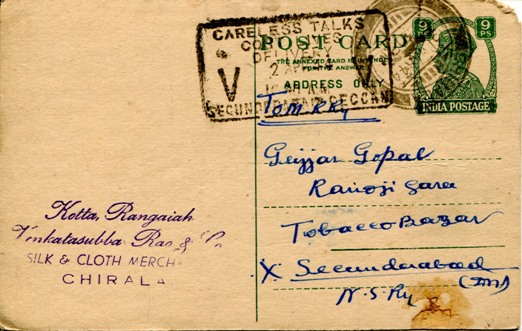 CARELESS TALKS
COST LIVES
DELIVERY
2 
V V
SECUNDERABAD DECCAN
POST CARD
THE ANNEXED CARD IS INTENDED
FOR THE ANSWER
ADDRESS ONLY
9 PS 9 PS
INDIA POSTAGE
To M.R.Ry
Gujjar Gopal
Ranoji gara
Tobacco Bazar
X. Secunderabad
N.S.Ry
Kotta, Rangaiah
Venkatasubba Rao & Co
SILK & CLOTH MERCH
CHIRALA